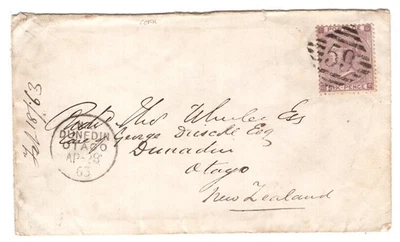 CORK
Feb 18/63
58
SIX PENCE
Thos Wheeler Esq
care George Esq
Dunedin
Otago
New Zealand
DUNEDIN
OTAGO
AP-28
63